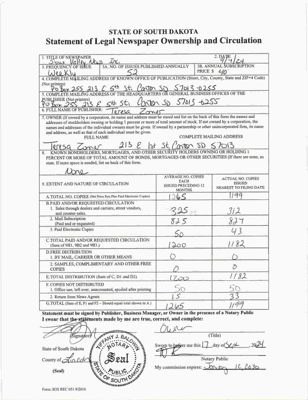 STATE OF SOUTH DAKOTA
Statement of Legal Newspaper Ownership and Circulation
1. TITLE OF NEWSPAPER
Sioux Valley News Inc.
2. DATE
3. FREQUENCY OF ISSUE
Weekly
3A. NO. OF ISSUES PUBLISHED ANNUALLY
52
3B. ANNUAL SUBSCRIPTION
PRICE $ 40
4. COMPLETE MAILING ADDRESS OF KNOWN OFFICE OF PUBLICATION (Street, City, County, State and ZIP+4 Code)
(Not printer)
PO Box 255 213 E 5th St. Canton SD 57013-0255
5. COMPLETE MAILING ADDRESS OF THE HEADQUARTERS OR GENERAL BUSINESS OFFICES OF THE
PUBLISHER (Not printer)
PO Box 255 213 E 5th St. Canton SD 57013-0255
6. FULL NAME OF PUBLISHER:
Teresa
7. OWNER (If owned by a corporation, its name and address must be stated and list on the back of this form the names and
addresses of stockholders owning or holding 1 percent or more of total amount of stock. If not owned by a corporation, the
names and addresses of the individual owners must be given. If owned by a partnership or other unincorporated firm, its name
and address, as well as that of each individual must be given.
FULL NAME
COMPLETE MAILING ADDRESS
Teresa
Canton SD 57013
8. KNOWN BONDHOLDERS, MORTGAGEES, AND OTHER SECURITY HOLDERS OWNING OR HOLDING 1
PERCENT OR MORE OF TOTAL AMOUNT OF BONDS, MORTGAGES OR OTHER SECURITIES (If there are none, so
state. If more space is needed, list on back of this form.
None
9. EXTENT AND NATURE OF CIRCULATION
AVERAGE NO. COPIES
EACH
ISSUED PRECEDING 12
MONTHS
ACTUAL NO. COPIES
ISSUED
NEAREST TO FILING DATE
A. TOTAL NO. COPIES
1265
1199
B. PAID AND/OR REQUESTED CIRCULATION
1. Sales through dealers and carriers, street vendors,
and counter sales.
325
312
2. Mail Subscription
(Paid and or requested)
825
827
3. Paid Electronic Copies
50
43
C. TOTAL PAID AND/OR REQUESTED CIRCULATION
(Sum of 9B1, 9B2 and 9B3)
1200
1182
D. FREE DISTRIBUTION
1. BY MAIL, CARRIER OR OTHER MEANS
0
0
2. SAMPLES, COMPLIMENTARY AND OTHER FREE
COPIES
0
0
E. TOTAL DISTRIBUTION (Sum of C, D1 and D2)
1200
1182
F. COPIES NOT DISTRIBUTED
1. Office use, left over, unaccounted, spoiled after printing
50
50
2. Return from News Agents
15
33
G. TOTAL (Sum of E, F1 and F2 - Should equal total shown in A.)
1265
1199
Statement must be signed by Publisher, Business Manager, or Owner in the presence of a Notary Public
I swear that the statements made by me are true, correct, and complete:
(Signed)
Owner
(Title)
State of South Dakota
Sworn to before me this 17 day of Sept
County of Lincoln
Notary Public
(Seal)
My commission expires: January
TIFFANY J. BALDWIN
NOTARY PUBLIC
Seal
SOUTH DAKOTA